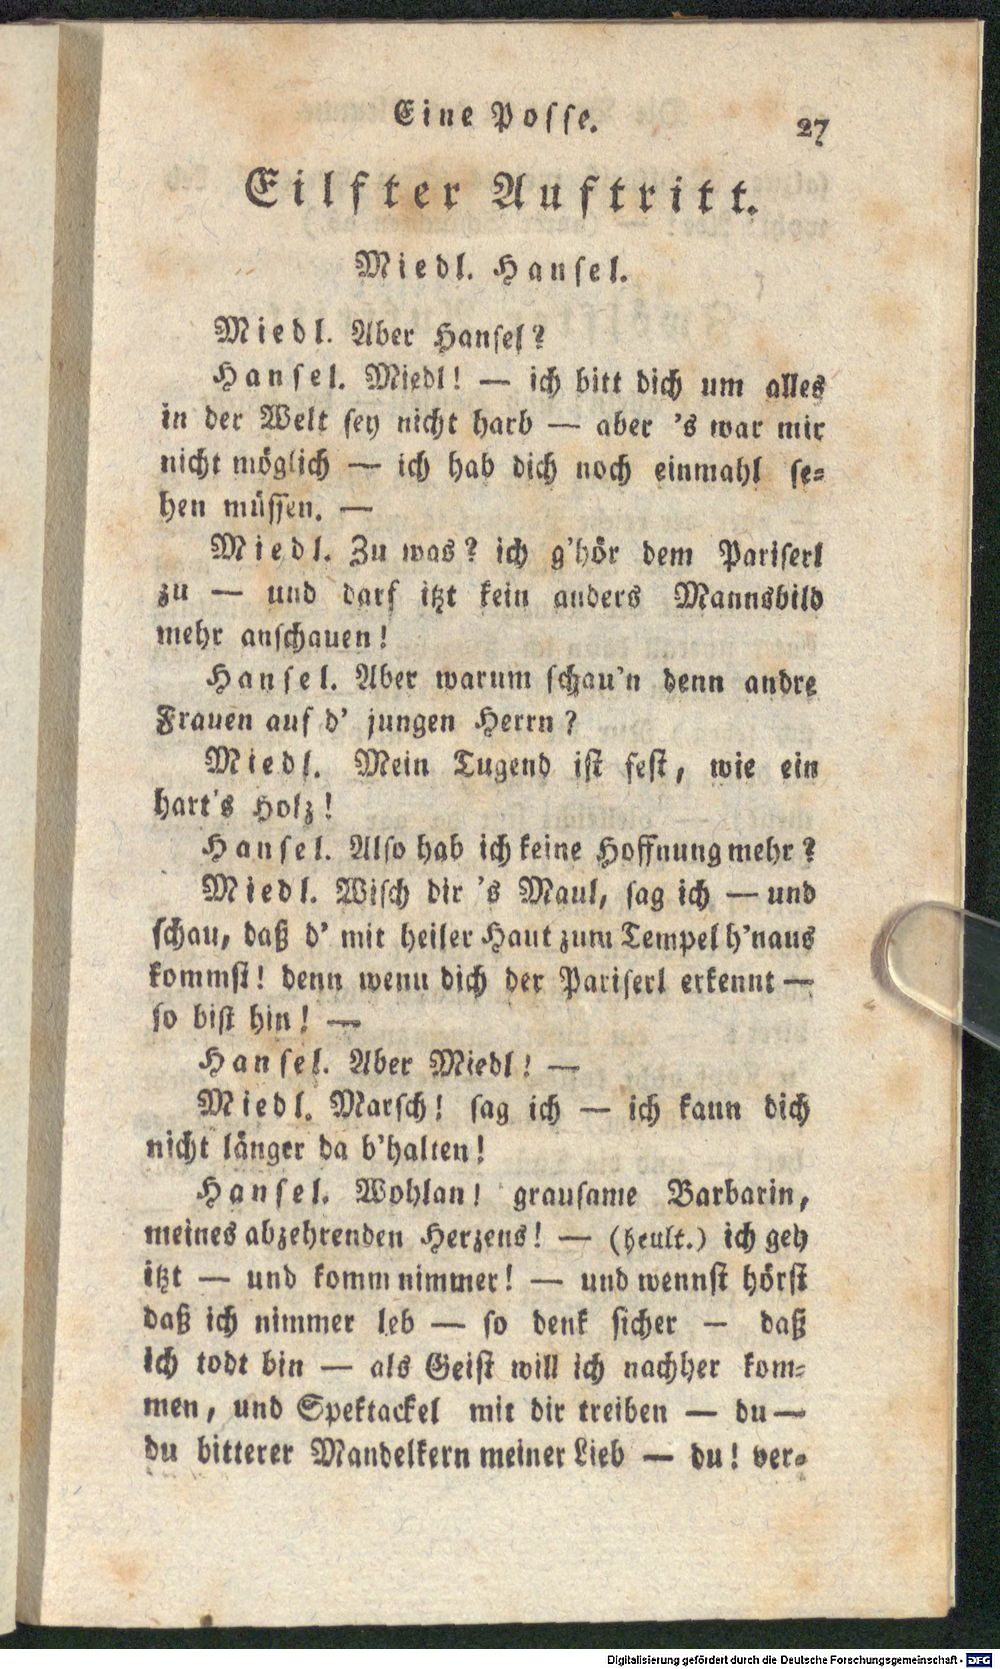 Eine Posse.
27
Eilfter Auftritt.
Miedl. Hansel.
Miedl. Aber Hansel?
Hansel. Miedl! — ich bitt dich um alles
in der Welt sey nicht harb — aber 's war mir
nicht möglich — ich hab dich noch einmahl se=
hen müssen. —
Miedl. Zu was? ich g'hör dem Pariserl
zu — und darf itzt kein anders Mannsbild
mehr anschauen!
Hansel. Aber warum schau'n denn andre
Frauen auf d' jungen Herrn?
Miedl. Mein Tugend ist fest, wie ein
hart's Holz!
Hansel. Also hab ich keine Hoffnung mehr?
Miedl. Wisch dir 's Maul, sag ich — und
schau, daß d' mit heiler Haut zum Tempel h'naus
kommst! denn wenn dich der Pariserl erkennt —
so bist hin! —
Hansel. Aber Miedl! —
Miedl. Marsch! sag ich — ich kann dich
nicht länger da b'halten!
Hansel. Wohlan! grausame Barbarin,
meines abzehrenden Herzens! — (heult.) ich geh
itzt — und komm nimmer! — und wennst hörst
daß ich nimmer leb — so denk sicher — daß
ich todt bin — als Geist will ich nachher kom=
men, und Spektackel mit dir treiben — du —
du bitterer Mandelkern meiner Lieb — du! ver=
Digitalisierung gefördert durch die Deutsche Forschungsgemeinschaft - DFG